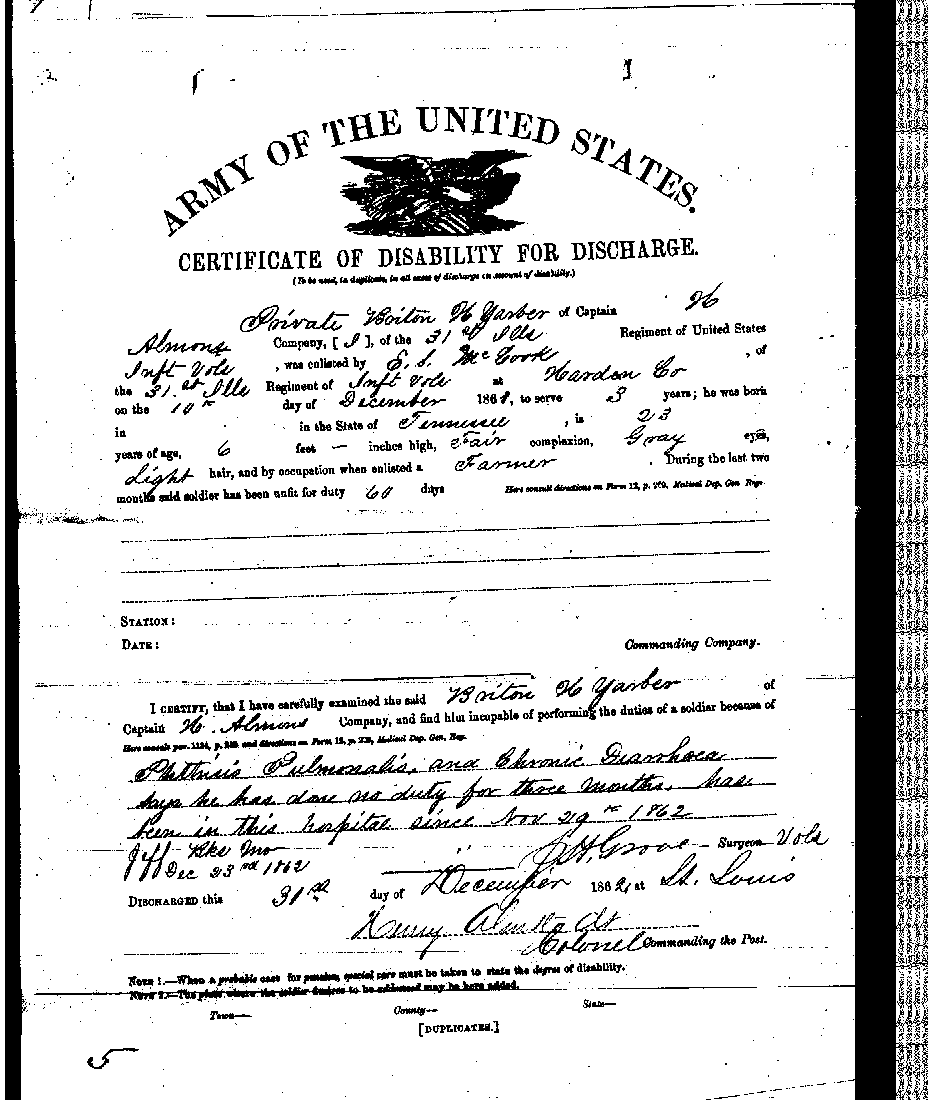 ARMY OF THE UNITED STATES.
CERTIFICATE OF DISABILITY FOR DISCHARGE.
(To be used, in duplicate, in all cases of discharge on account of disability.)
Private Briton H Yarber of Captain H
Almond Company, [ I ], of the 31st Ills Regiment of United States
Inft Vols , was enlisted by E. S. McCook , of
the 31st Ills Regiment of Inft Vols at Harden Co
on the 10th day of December 1861, to serve 3 years; he was born
in in the State of Tennessee , is 23
years of age, 6 feet — inches high, Fair complexion, Gray eyes,
Light hair, and by occupation when enlisted a Farmer . During the last two
months said soldier has been unfit for duty 60 days Here consult directions on Form 12, p. Medical Dep. Gen. Reg.
STATION:
DATE:
Commanding Company.
I CERTIFY, that I have carefully examined the said Briton H Yarber of
Captain H. Almond Company, and find him incapable of performing the duties of a soldier because of
Here consult par. 1134, p. and directions on Form 12, p. Medical Dep. Gen. Reg.
Phthisis Pulmonalis, and Chronic Diarrhoea
says he has done no duty for three months, has
been in this hospital since Nov 29th 1862
Jeff Bks Mo
Dec 23rd 1862
J. H. Grove — Surgeon Vols
DISCHARGED this 31st day of December 1862, at St. Louis
Henry Almstedt
Colonel Commanding the Post.
NOTE 1.—When a probable case for pension, special care must be taken to state the degree of disability.
NOTE 2.—The place where the soldier desires to be addressed may be here added.
Town— County— State—
[DUPLICATES.]
5